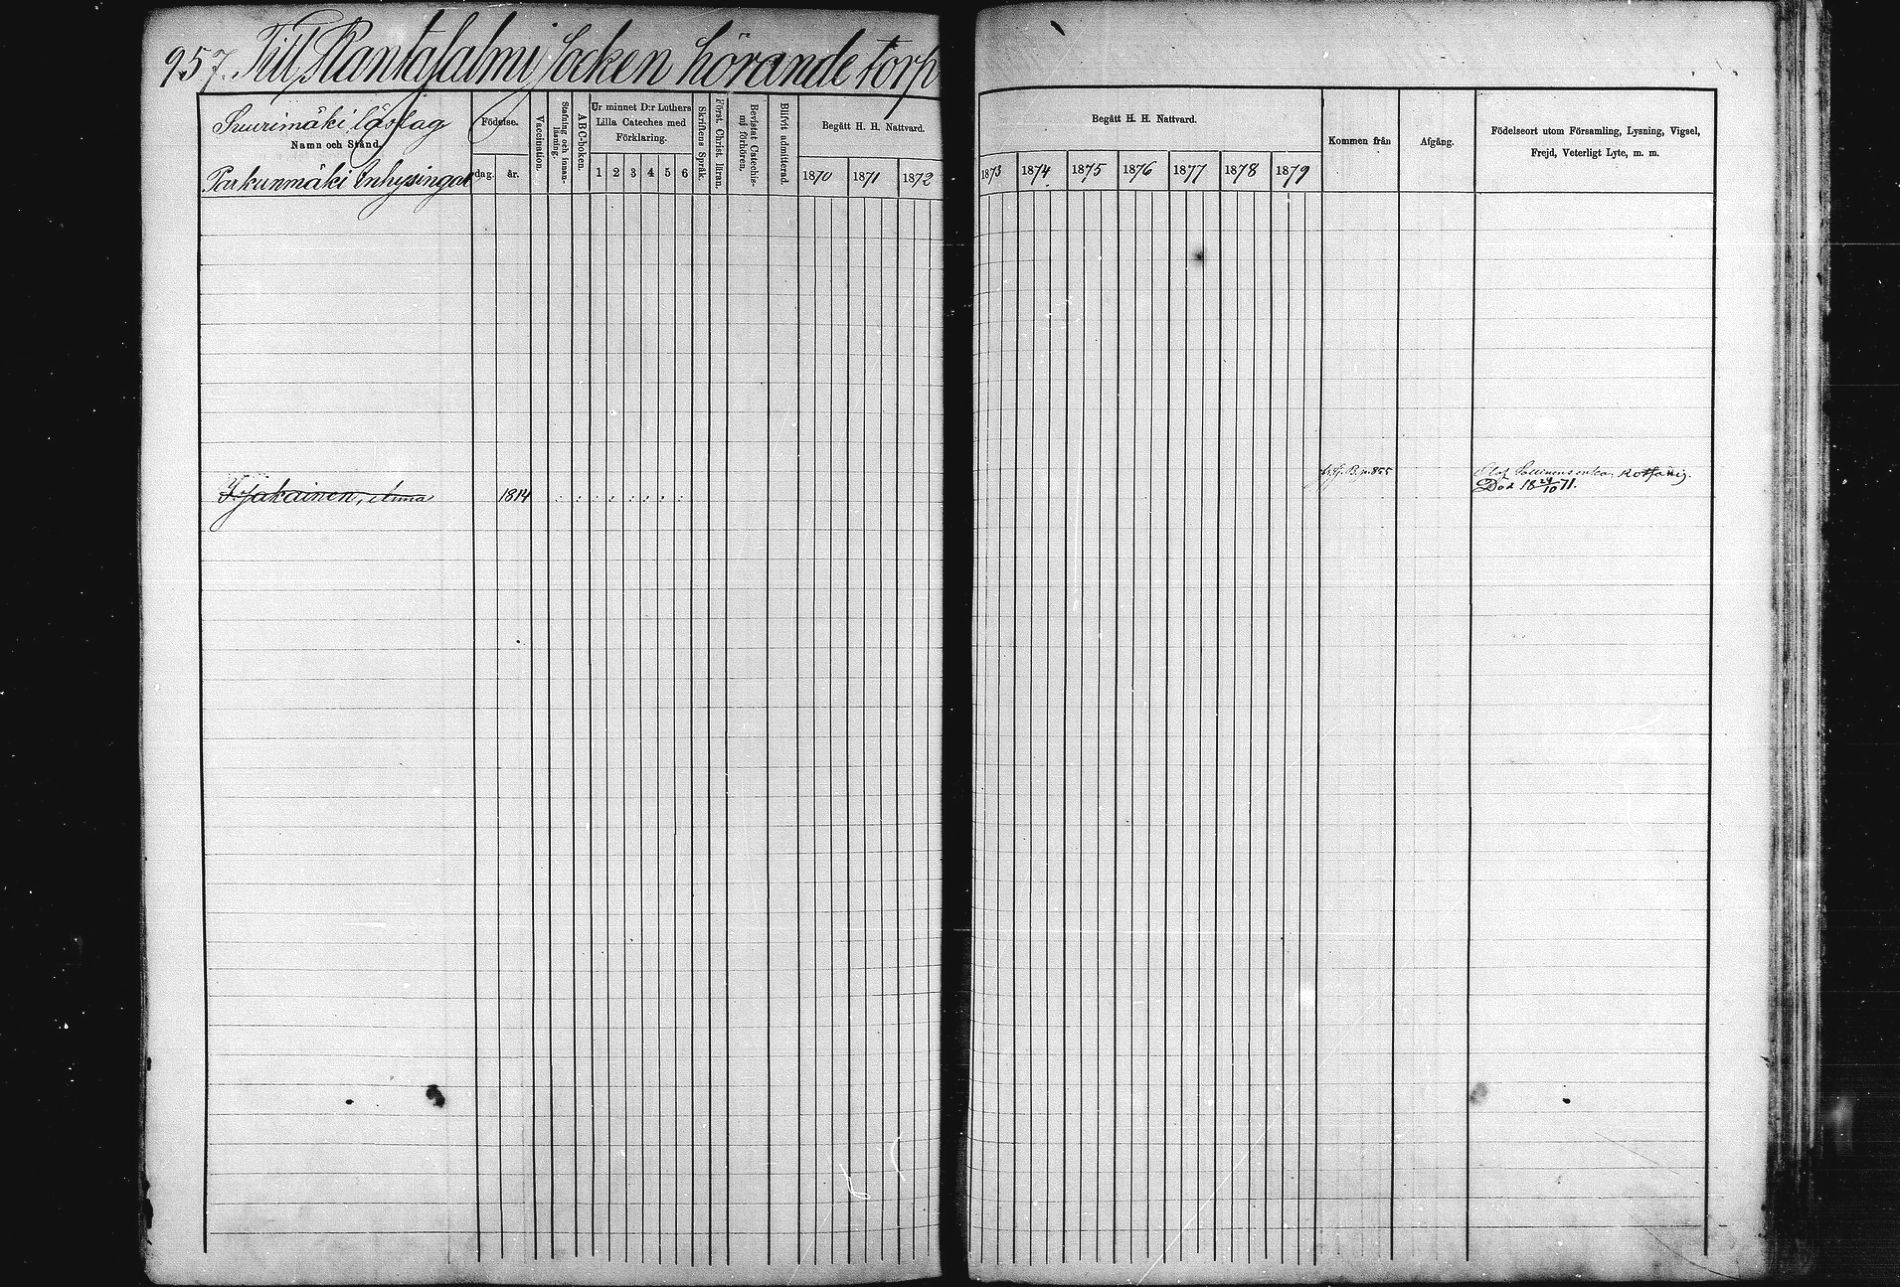 957. Till Rantasalmi socken hörande torp
Suurimäki läslag
Namn och Stånd.
Parkunmäki Inhysingar
Födelse.
dag. år.
Vaccination.
Stafning och innan-läsning.
ABC-boken.
Ur minnet D:r Luthers
Lilla Cateches med
Förklaring.
1 2 3 4 5 6
Skriftens Språk.
Först. Christ. läran.
Bevistat Catechis-mi förhören.
Blifvit admitterad.
Begått H. H. Nattvard.
1870 1871 1872
Begått H. H. Nattvard.
1873 1874 1875 1876 1877 1878 1879
Kommen från
Afgång.
Födelseort utom Församling, Lysning, Vigsel,
Frejd, Veterligt Lyte, m. m.
Anna 1814
B. n. 855
Olof enka.
Död 18 24/10 71.